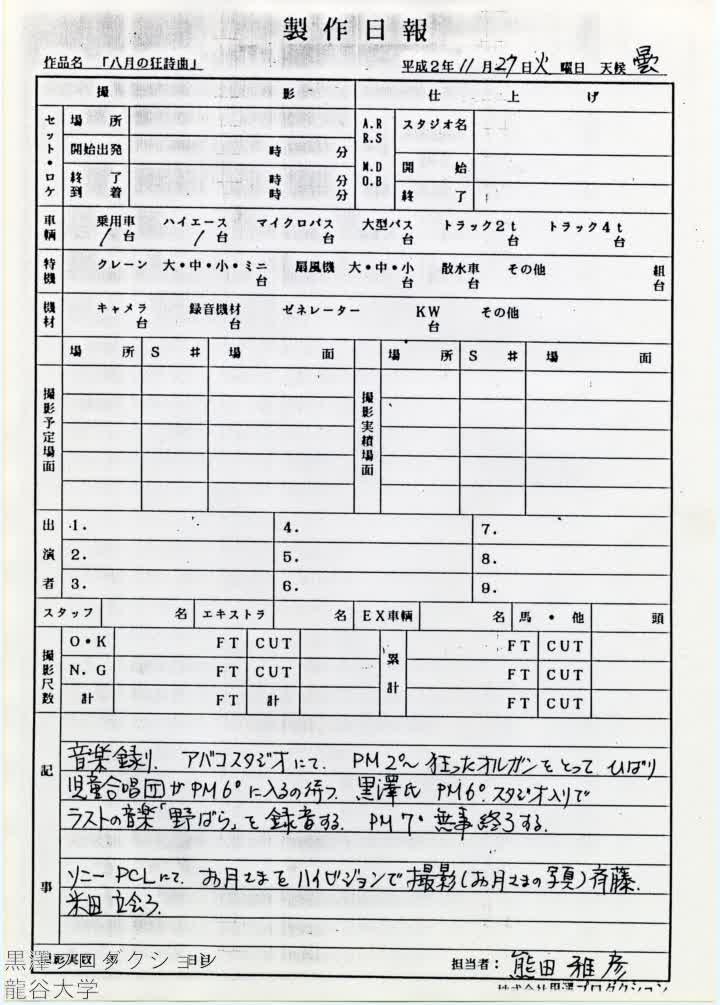 製作日報
作品名 「八月の狂詩曲」 平成2年11月27日火曜日 天候 曇
撮影 仕上げ
セット・ロケ 場所 A.R R.S スタジオ名
開始出発 時 分
終了 時 分 M.D O.B 開始
到着 時 分 終了
車輌 乗用車 ハイエース マイクロバス 大型バス トラック2t トラック4t
/台 /台 台 台 台 台
特機 クレーン 大・中・小・ミニ 扇風機 大・中・小 散水車 その他 組
台 台 台 台
機材 キャメラ 録音機材 ゼネレーター KW その他
台 台 台
場所 S# 場面 場所 S# 場面
撮影予定場面 撮影実績場面
出演者 1. 4. 7.
2. 5. 8.
3. 6. 9.
スタッフ 名 エキストラ 名 EX車輌 名 馬・他 頭
撮影尺数 O・K FT CUT 累計 FT CUT
N.G FT CUT FT CUT
計 FT 計 FT CUT
記事
音楽録り. アバコスタジオにて. PM2°〜 狂ったオルガンをとって ひばり
児童合唱団がPM6°に入るの待つ. 黒澤氏 PM6°.スタジオ入りで
ラストの音楽「野ばら」を録音する. PM7° 無事終了する.
ソニーPCLにて. お月さまをハイビジョンで撮影(お月さまの写真)斉藤.
米田立会う.
担当者: 熊田雅彦
株式会社黒澤プロダクション
黒澤プロダクション
龍谷大学